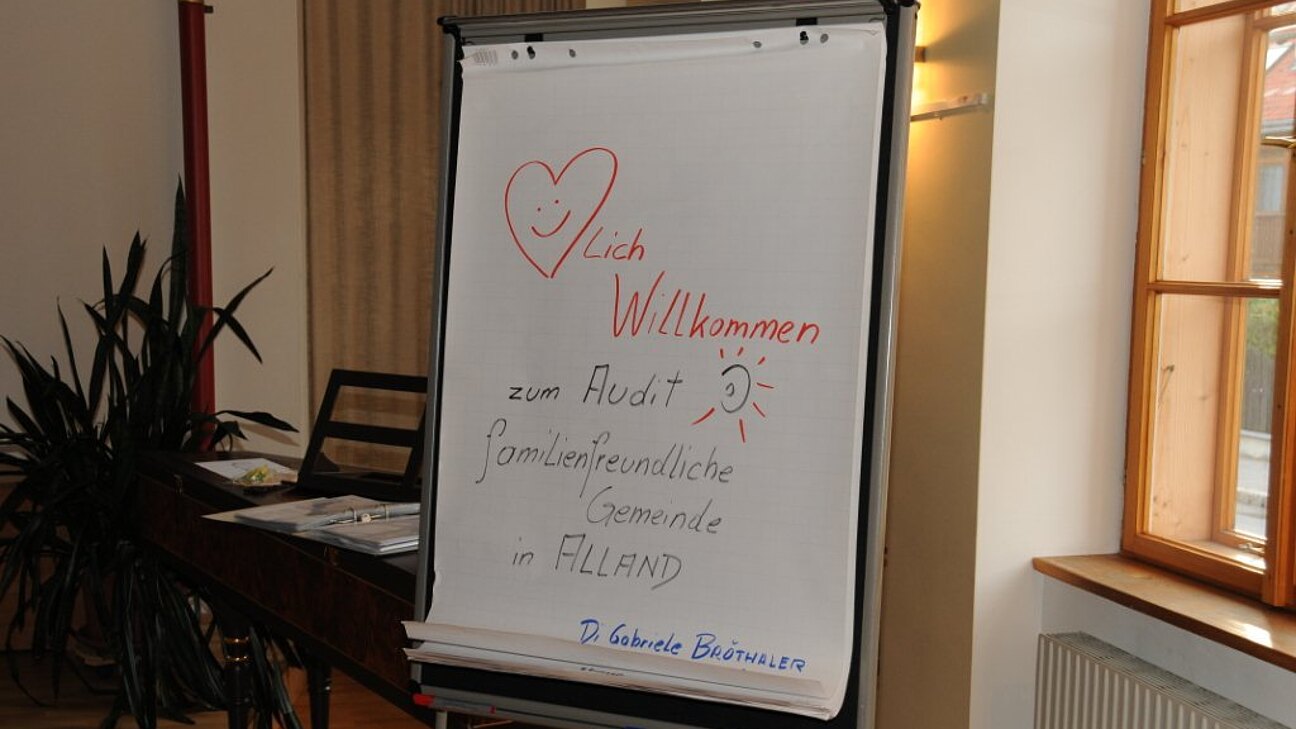 lich
Willkommen
zum Audit
familienfreundliche
Gemeinde
in ALLAND
Di Gabriele BRÖTHALER